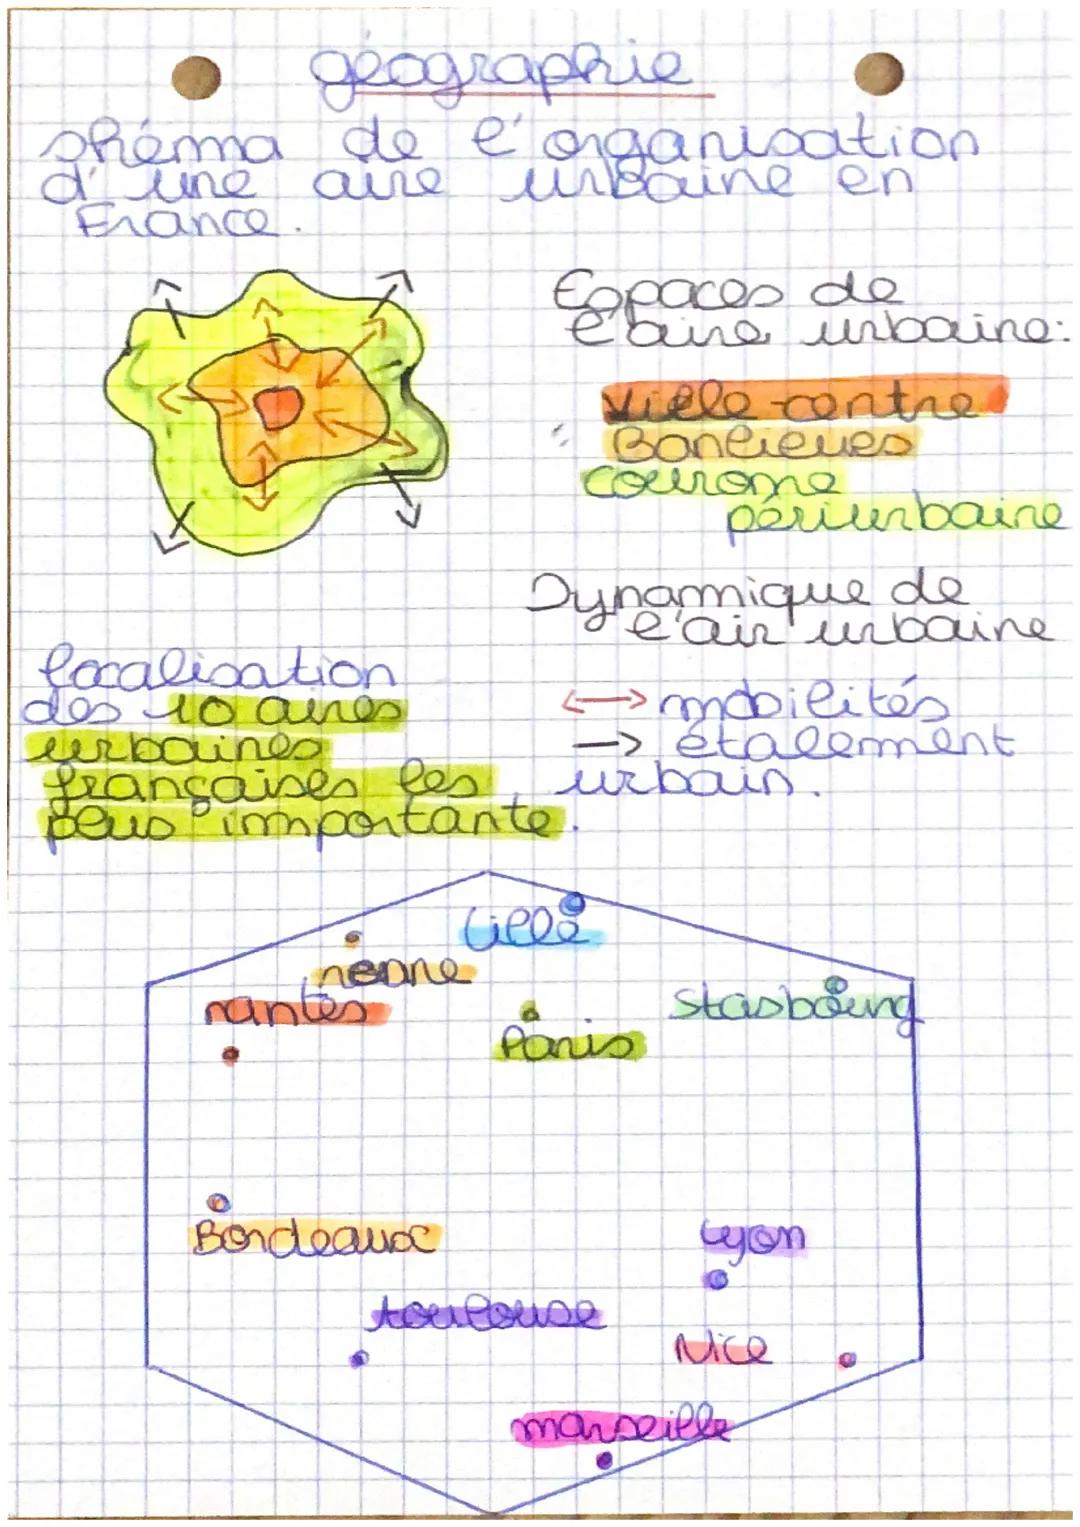 géographie
shéma de l'organisation
d'une aire urbaine en
France.
Espaces de
l'aire urbaine:
Vielle centre
Banlieues
couronne
périurbaine
Dynamique de
l'air urbaine
<-> mobilités
-> étalement
urbain.
localisation
des 10 aires
urbaines
françaises les
plus importante.
Lille
renne
nantes
Stasbourg
Paris
Bordeaux
Lyon
toulouse
Nice
marseille